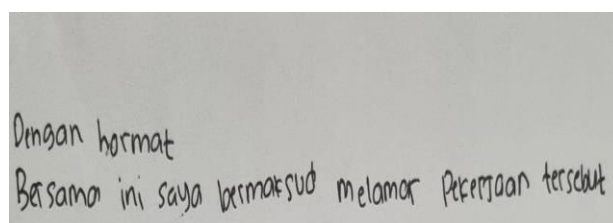 Dengan hormat
Bersama ini saya bermaksud melamar Pekerjaan tersebut